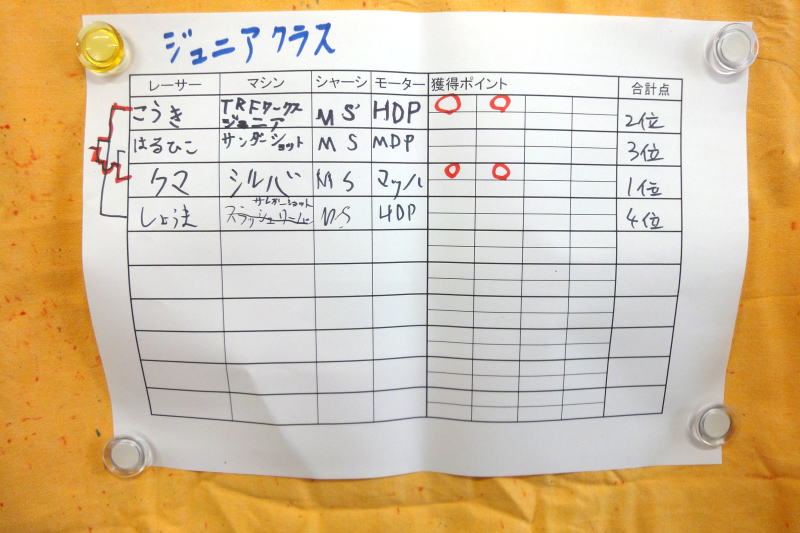 ジュニアクラス
レーサー マシン シャーシ モーター 獲得ポイント 合計点
こうき TRFワークス ジュニア MS HDP 2位
はるひこ サンダーショット MS MDP 3位
クマ シルバ MS マッハ 1位
しょうま MS HDP 4位